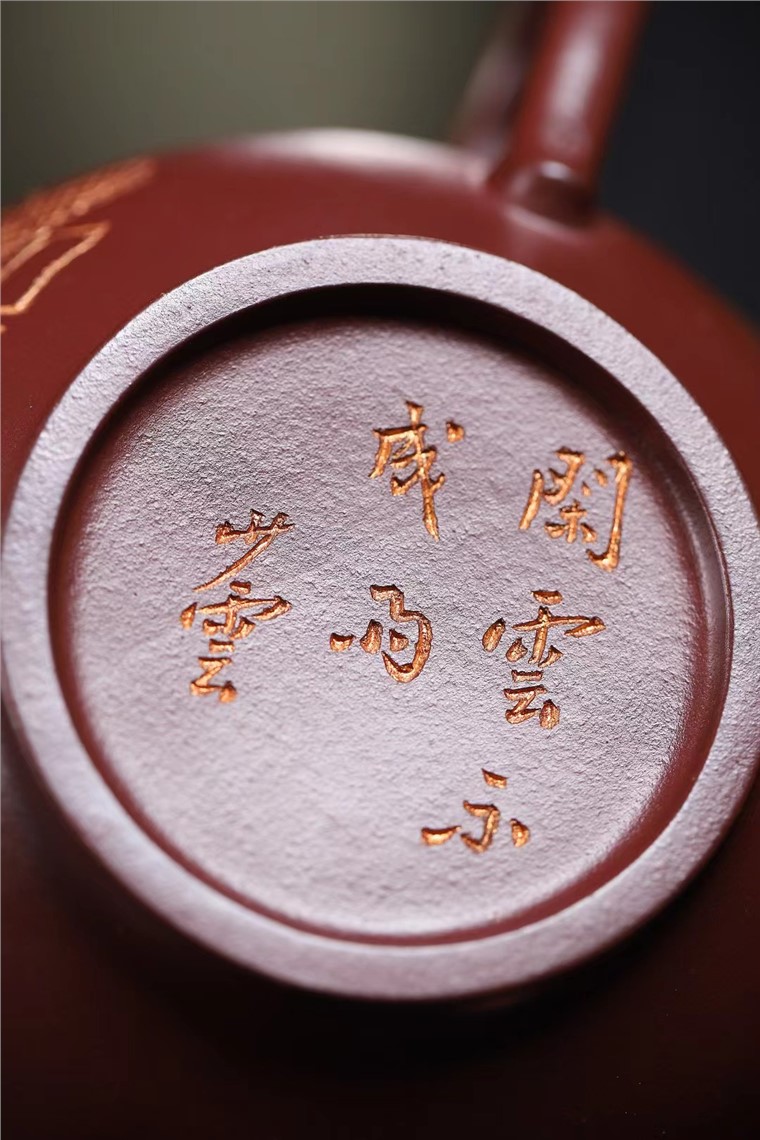 閑雲亦
成雨
少雲